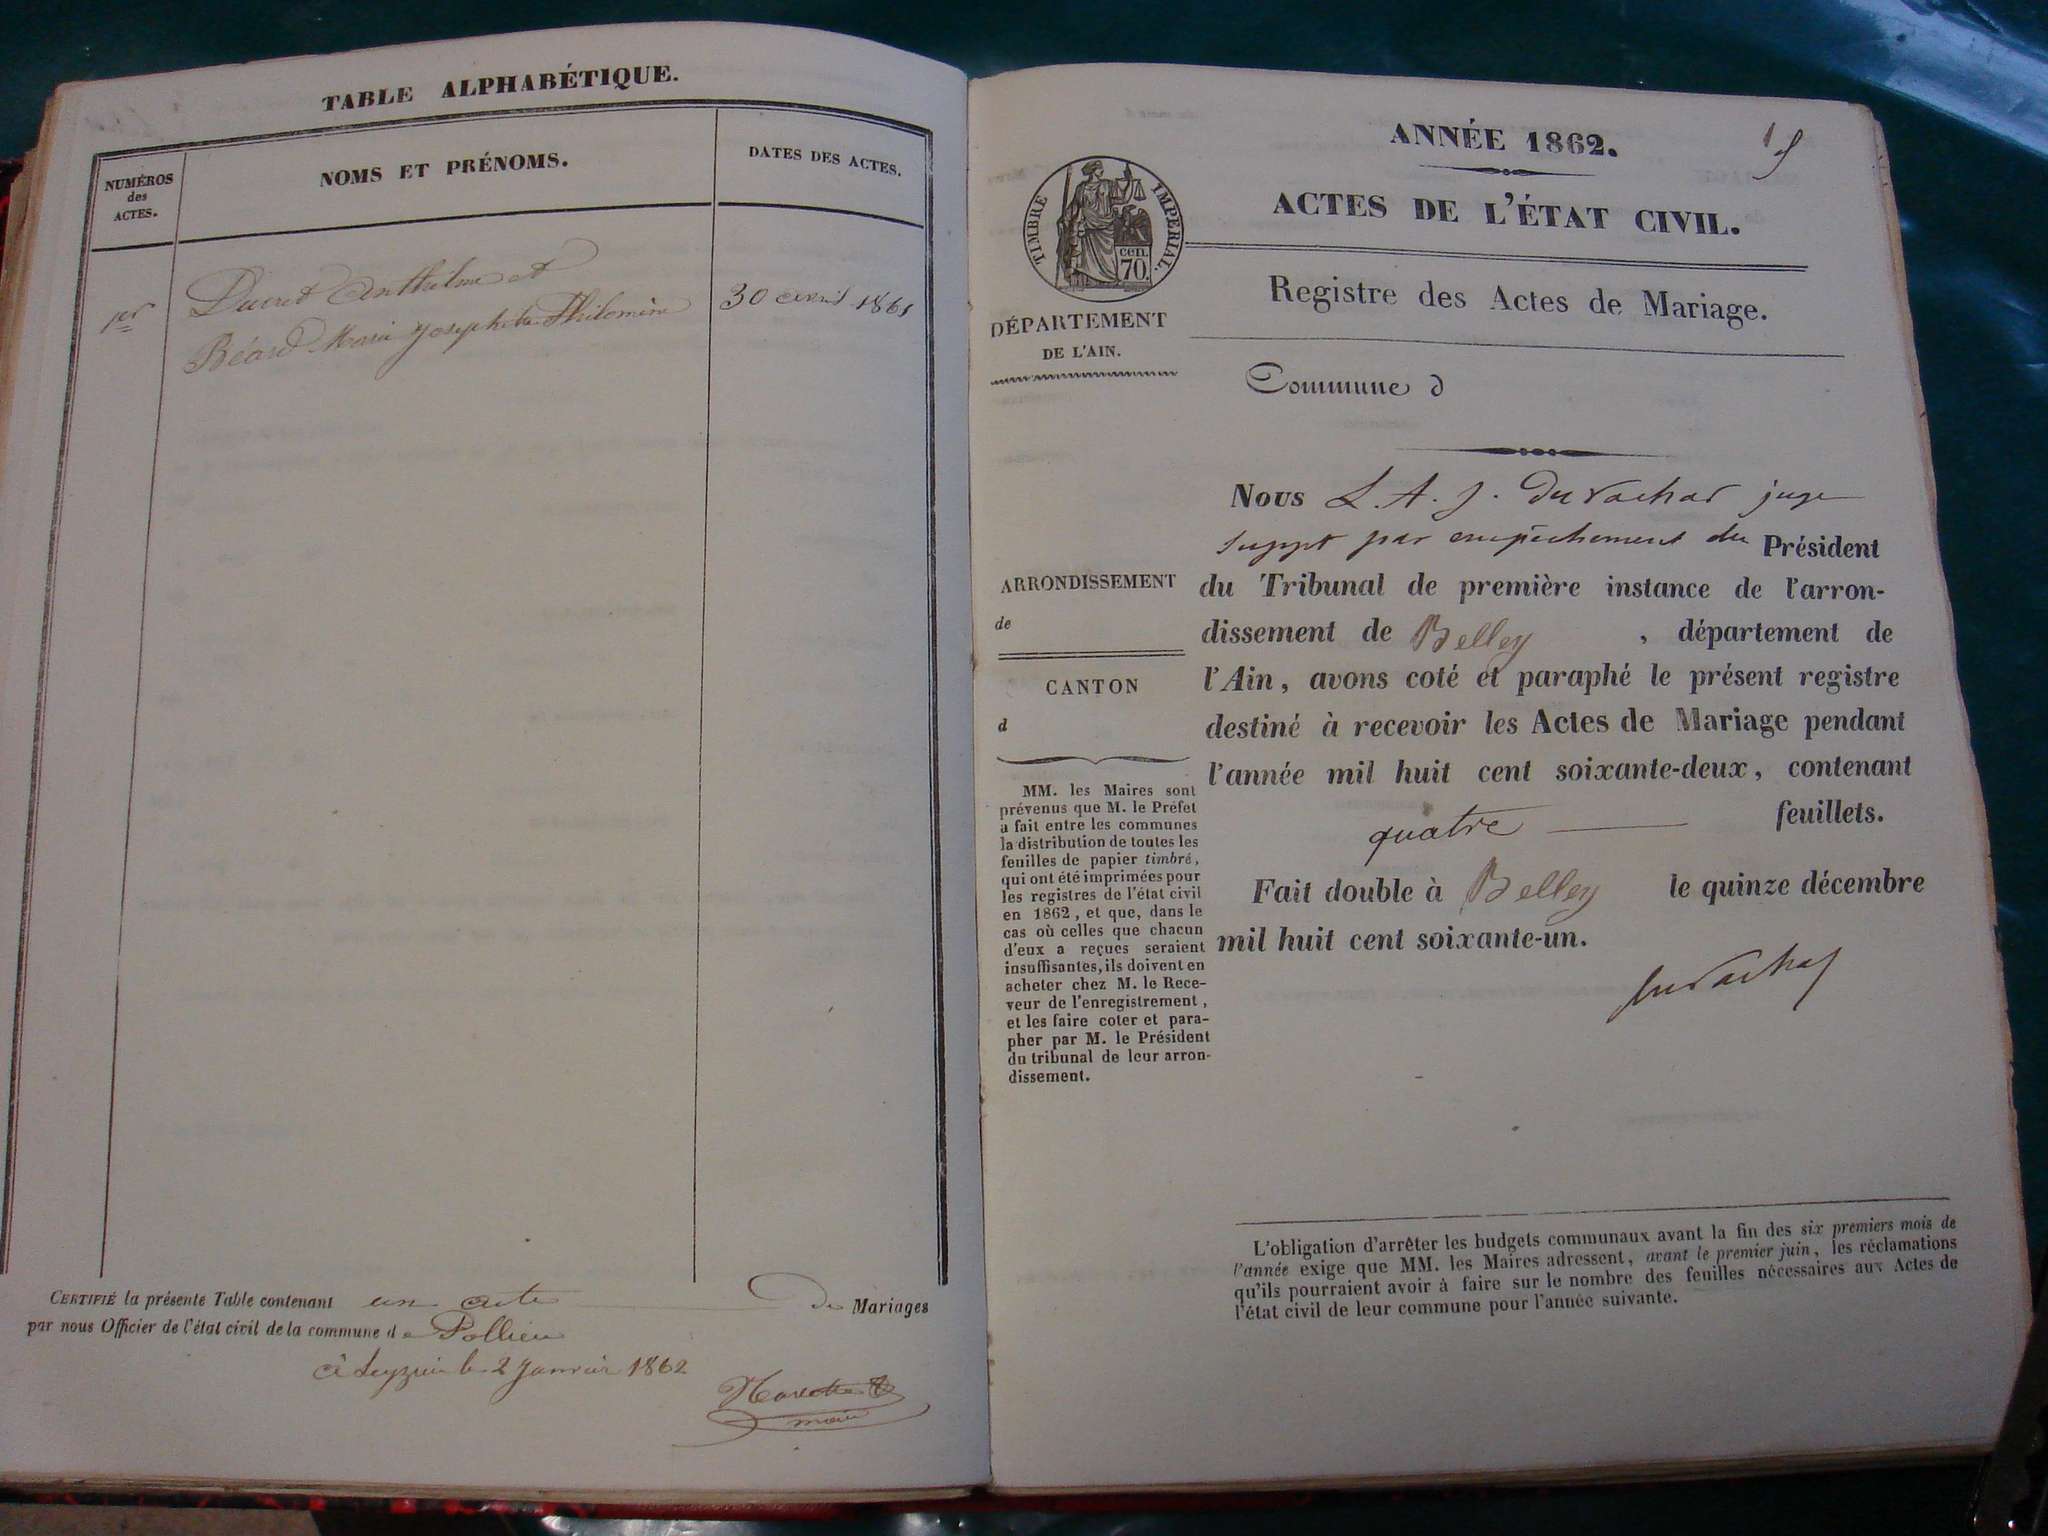 TABLE ALPHABÉTIQUE.
NUMÉROS
des
ACTES.
NOMS ET PRÉNOMS.
DATES DES ACTES.
1er
Ducret Anthelme et
Béard Marie Josephte Philomène
30 avril 1861
CERTIFIÉ la présente Table contenant un acte de Mariages
par nous Officier de l'état civil de la commune de Pollieu
à Leyzieu le 2 Janvier 1862
maire
ANNÉE 1862.
ACTES DE L'ÉTAT CIVIL.
TIMBRE IMPÉRIAL.
CEN.
70.
Registre des Actes de Mariage.
DÉPARTEMENT
DE L'AIN.
Commune d
Nous L. A. J. Duvachat juge
suppt par empêchement du Président
du Tribunal de première instance de l'arron-
dissement de Belley , département de
l'Ain, avons coté et paraphé le présent registre
destiné à recevoir les Actes de Mariage pendant
l'année mil huit cent soixante-deux, contenant
quatre feuillets.
Fait double à Belley le quinze décembre
mil huit cent soixante-un.
Duvachat
ARRONDISSEMENT
de
CANTON
d
MM. les Maires sont
prévenus que M. le Préfet
a fait entre les communes
la distribution de toutes les
feuilles de papier timbré,
qui ont été imprimées pour
les registres de l'état civil
en 1862, et que, dans le
cas où celles que chacun
d'eux a reçues seraient
insuffisantes, ils doivent en
acheter chez M. le Rece-
veur de l'enregistrement,
et les faire coter et para-
pher par M. le Président
du tribunal de leur arron-
dissement.
L'obligation d'arrêter les budgets communaux avant la fin des six premiers mois de
l'année exige que MM. les Maires adressent, avant le premier juin, les réclamations
qu'ils pourraient avoir à faire sur le nombre des feuilles nécessaires aux Actes de
l'état civil de leur commune pour l'année suivante.